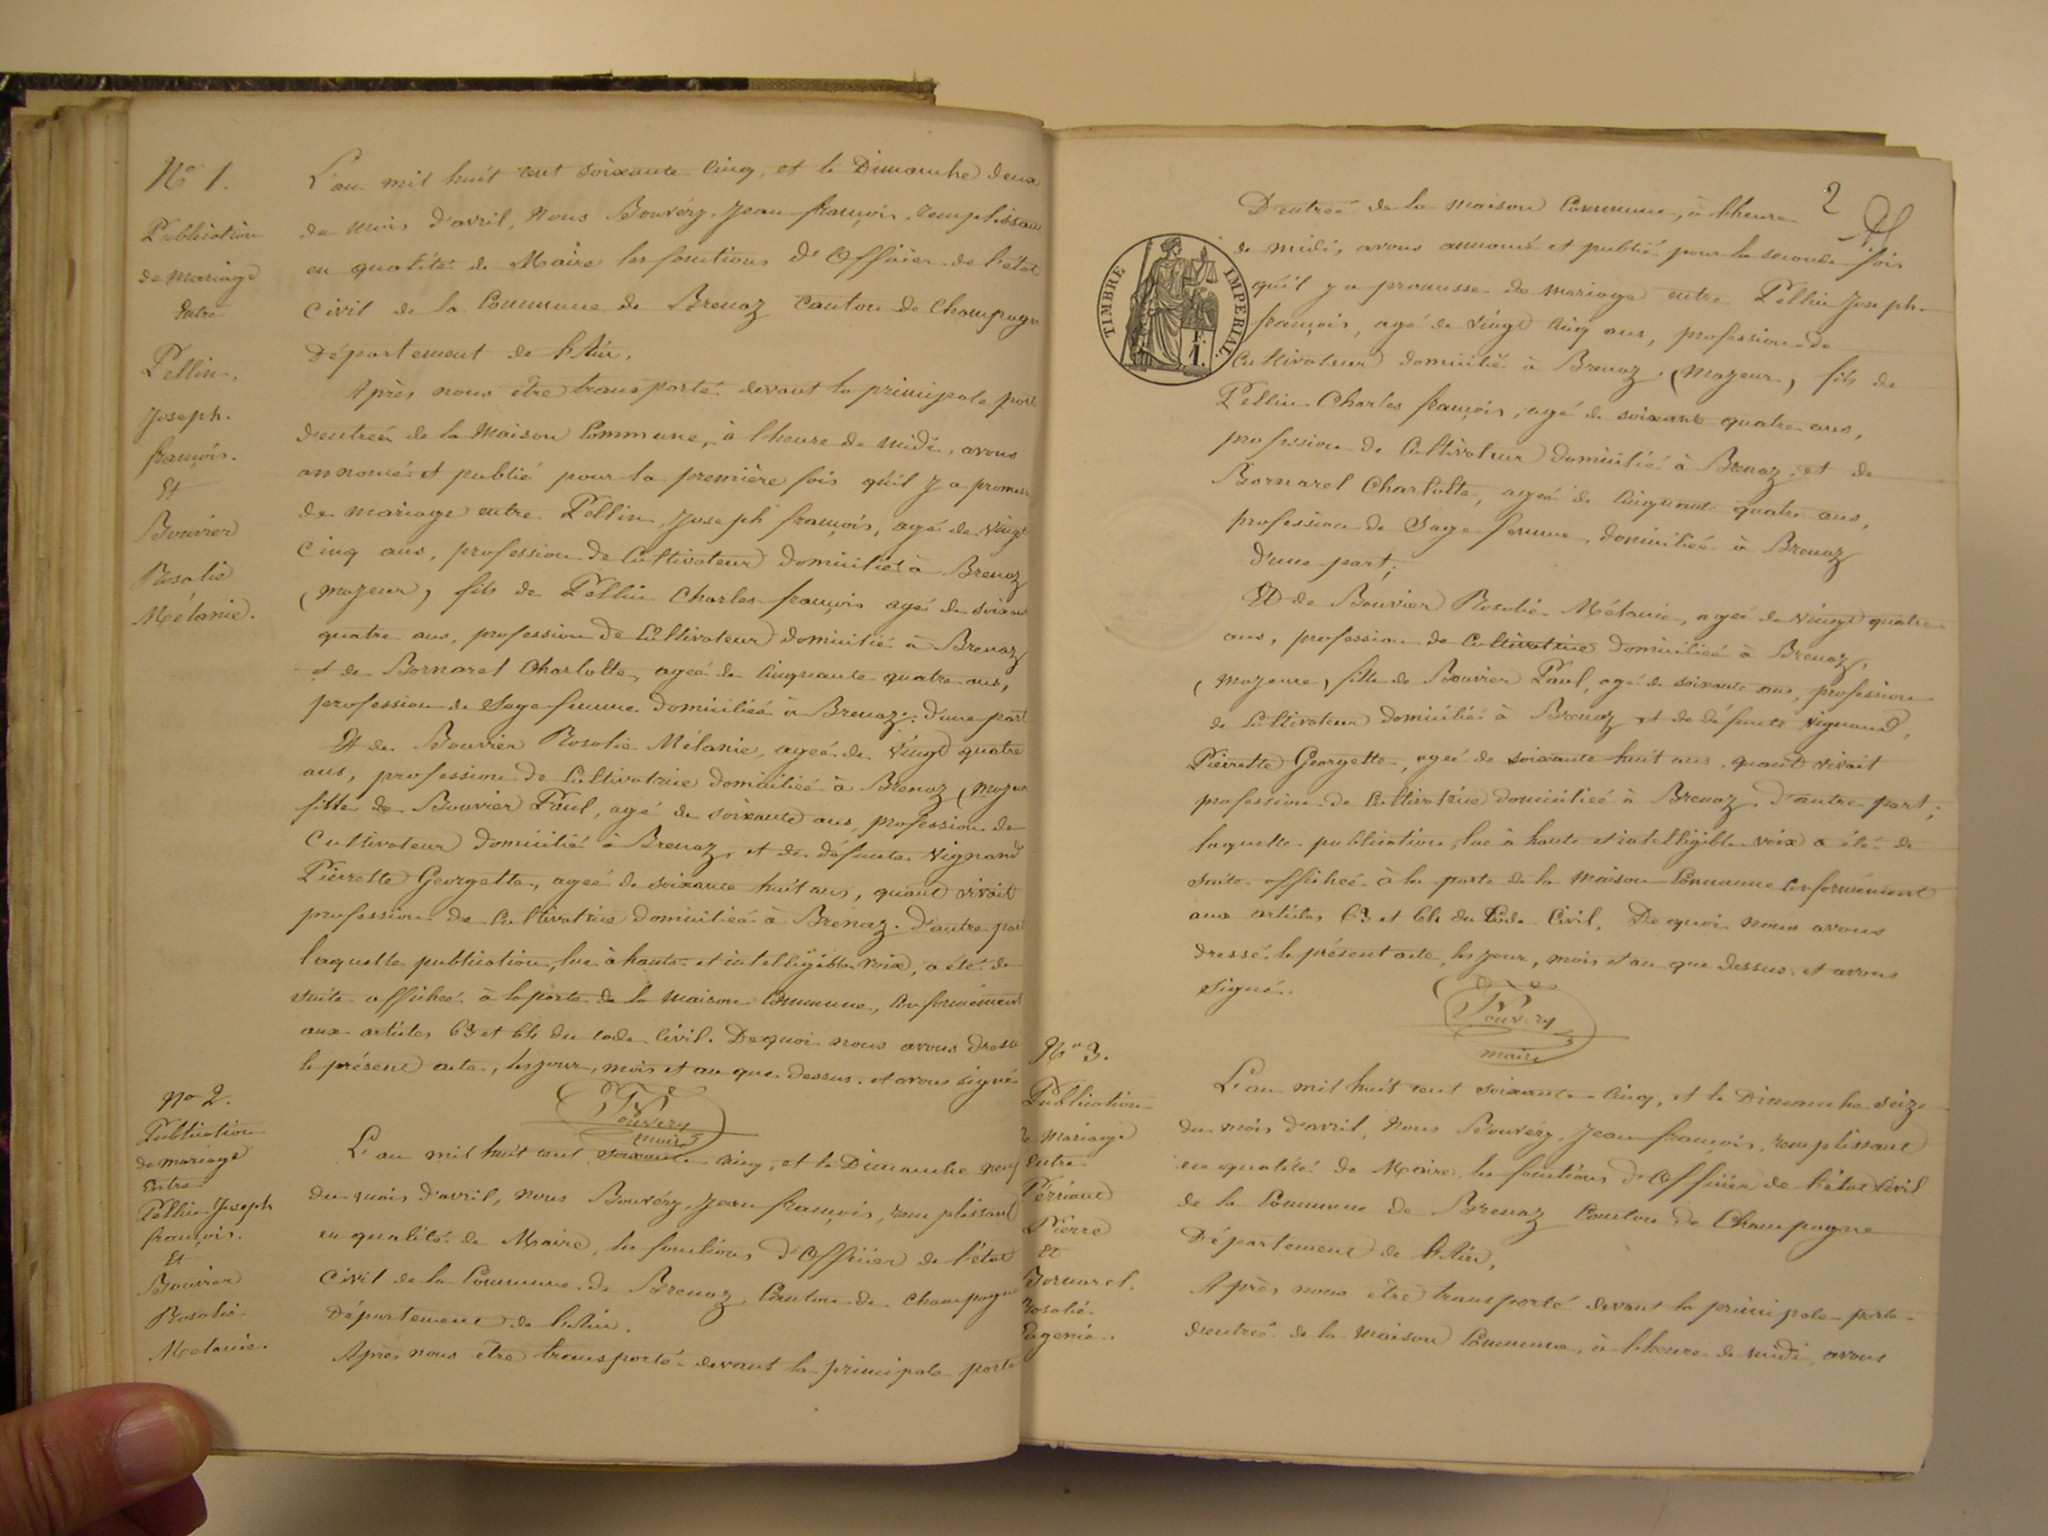 No 1.
Publication
de mariage
Entre
Pellin,
Joseph.
françois.
Et
Bouvier
Rosalie
Mélanie.
L'an mil huit cent soixante cinq, et le Dimanche deux
du mois d'avril, Nous Bouvéry, Jean françois, remplissant
en qualité de Maire les fonctions d'Officier de l'état
civil de la Commune de Brenaz Canton de Champagne
Département de l'Ain.
Après nous être transporté devant la principale porte
d'entreé de la Maison Commune, à l'heure de midi, avons
annoncé et publié pour la première fois qu'il y a promesse
de mariage entre Pellin, Joseph françois, agé de vingt
cinq ans, profession de Cultivateur domicilié à Brenaz
(majeur) fils de Pellin Charles françois agé de soixante
quatre ans, profession de Cultivateur domicilié à Brenaz
et de Bornarel Charlotte, ageé de Cinquante quatre ans,
profession de Sage femme domiciliéé à Brenaz. d'une part
Et de Bouvier Rosalie Mélanie, ageé de vingt quatre
ans, profession de Cultivatrice domiciliéé à Brenaz (majeure
fille de Bouvier Paul, agé de soixante ans, profession de
Cultivateur domicilié à Brenaz, et de défunte Vignand
Pierrette Georgette, ageé de soixante huit ans, quand vivait
profession de Cultivatrice domiciliéé à Brénaz. d'autre part
laquelle publication, lue à haute et intelligible voix, a été de
suite affichéé à la porte de la maison Commune, Conformément
aux articles 63 et 64 du code Civil. De quoi nous avons dressé
le présent acte, les jour, mois et an que dessus. et avons signé.
Bouvery
maire
No 2.
Publication
de mariage
Entre
Pellin Joseph
françois.
Et
Bouvier
Rosalie
Melanie.
L'an mil huit cent soixante cinq, et le Dimanche neuf
du mois d'avril, nous Bouvéry, Jean françois, remplissant
en qualité de Maire, les fonctions d'Officier de l'état
Civil de la Commune de Brenaz, Canton de Champagne
Département de l'Ain.
Après nous être transporté devant la principale porte
2
TIMBRE IMPERIAL.
1 F.
D'entreé de la maison Commune, à l'heure
de midi, avons annoncé et publié pour la seconde fois
qu'il y a promesse de mariage entre Pellin Joseph
françois, agé de vingt cinq ans, profession de
Cultivateur domicilié à Brenaz, (Majeur) fils de
Pellin Charles françois, agé de soixante quatre ans,
profession de Cultivateur domicilié à Brenaz et de
Bornarel Charlotte, ageé de Cinquante quatre ans,
profession de Sage femme, domiciliéé à Brenaz
d'une part;
Et de Bouvier Rosalie Mélanie, ageé de vingt quatre
ans, profession de Cultivatrice domiciliéé à Brenaz,
(majeure) fille de Bouvier Paul, agé de soixante ans, profession
de Cultivateur domicilié à Brenaz et de défunte Vignand,
Pierrette Georgette, ageé de soixante huit ans, quand vivait
profession de Cultivatrice domiciliéé à Brenaz. d'autre part;
laquelle publication, lue à haute et intelligible voix a été de
suite affichéé à la porte de la Maison Commune Conformément
aux articles 63 et 64 du Code Civil. De quoi nous avons
dressé le présent acte, les jour, mois et an que dessus et avons
signé.
Bouvery
maire
No 3.
Publication
de Mariage
Entre
Perriand
Pierre
Et
Jornarel.
Rosalie
Eugenie.
L'an mil huit cent soixante cinq, et le Dimanche seize
du mois d'avril, Nous Bouvéry, Jean françois, remplissant
en qualité de Maire, les fonctions d'Officier de l'état Civil
de la Commune de Brenaz Canton de Champagne
Département de l'Ain,
Après nous être transporté devant la principale porte
d'entreé de la Maison Commune, à l'heure de midi, avons